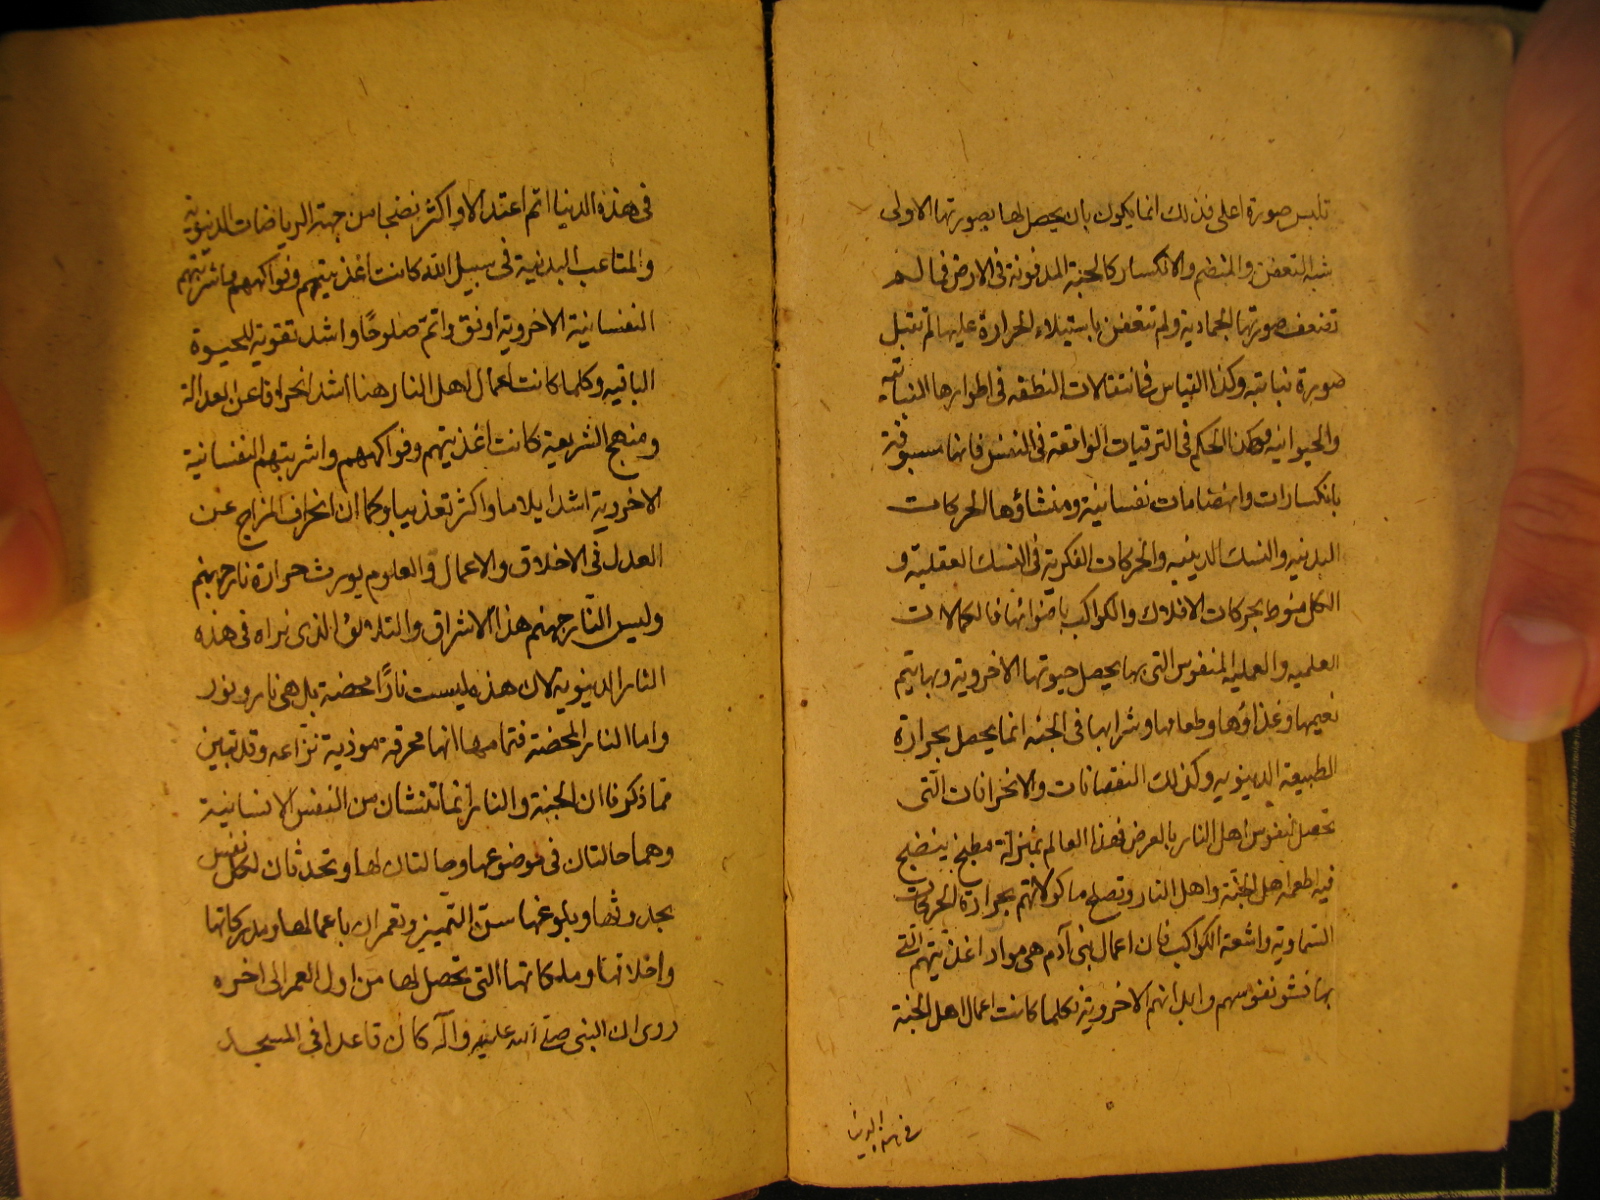 تلبس صورة اعلى فذلك انما يكون بان يحصل لها بصورتها الاولى
شبه التعفن والهضم والانكسار كالحبة المدفونة فى الارض فما لم
تضعف صورتها الجمادية ولم تتعفن باستيلاء الحرارة عليها لم تقبل
صورة نباتية وكذا القياس فى انتقالات النطفه فى اطوارها النباتية
والحيوانيه وهكذا الحكم فى الترقيات الواقعة فى النفس فانها مسبوقة
بانكسارات وانهضامات نفسانية ومنشاؤها الحركات
البدنيه والنسك الدينيه والحركات الفكرية فى النسك العقلية و
الكل منوط بحركات الافلاك والكواكب باضوائها فالكمالات
العلميه والعمليه للنفوس التى بها يحصل حيوتها الاخروية وبها يتم
نعيمها وغذاؤها وطعامها وشرابها فى الجنه انما يحصل بحرارة
الطبيعة الدنيويه وكذلك النقصانات والانحرافات التى
تحصل لنفوس اهل النار بالعرض فهذا العالم بمنزلة مطبخ ينضج
فيه اطعمة اهل الجنة واهل النار وتصلح ماكولاتهم بحرارة الحركات
السماوية واشعة الكواكب فان اعمال بنى آدم هى مواد اغذيتهم التى
بها نشو نفوسهم وابدانهم الاخروية فكلما كانت اعمال اهل الجنة
فى هذه الدنيا
فى هذه الدنيا اتم اعتدالا واكثر نضجا من جهة الرياضات الدنيوية
والمتاعب البدنية فى سبيل الله كانت اغذيتهم وفواكههم واشربتهم
النفسانية الاخروية اوفق واتم صلوحًا واشد تقوية للحيوة
الباقيه وكلما كانت اعمال اهل النار هنا اشد انحرافا عن العدالة
ومنهج الشريعة كانت اغذيتهم وفواكههم واشربتهم النفسانية
الاخروية اشد ايلاما واكثر تعذيبا وكما ان انحراف المزاج عن
العدل فى الاخلاق والاعمال والعلوم يورث حرارة نار جهنم
وليس النار جهنم هذا الاشراق والتلالؤ الذى نراه فى هذه
النار الدنيوية لان هذه ليست نارًا محضة بل هى نار ونور
واما النار المحضة فتمامها انها محرقة موذية نزاعه وقد تبين
مما ذكرنا ان الجنة والنار انما تنشان من النفس الانسانية
وهما حالتان فى موضوعها وحالتان لها وتحدثان لكل نفس
بحدوثها وبلوغها سن التميز وتعمران باعمالها ومدركاتها
واخلاقها وملكاتها التى تحصل لها من اول العمر الى اخره
روى ان النبى صلى الله عليه وآله كان قاعدا فى المسجد